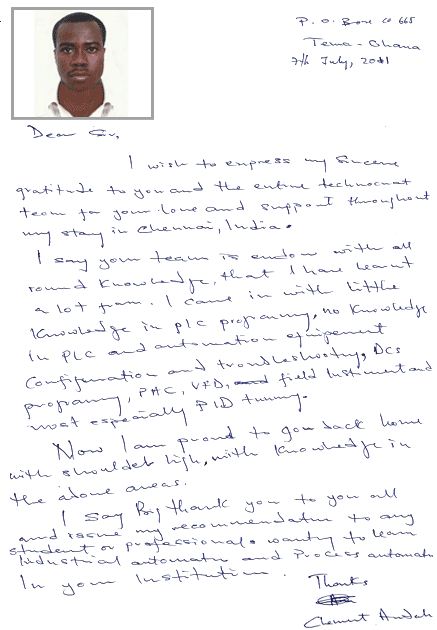 P. O. Box co 665
Tema - Ghana
7th July, 2011
Dear Sir,
I wish to express my sincere
gratitude to you and the entire technocrat
team for your love and support throughout
my stay in Chennai, India.
I say your team is endow with all
round knowledge, that I have learnt
a lot from. I came in with little
knowledge in plc programy, no knowledge
in PLC and automation equipment
Configuration and troubleshooty, DCS
programy, PAC, VFD, field Instrument and
most especially PID tunning.
Now I am proud to go back home
with shoulder high, with knowledge in
the above areas.
I say Big thank you to you all
and issue my recommendatn to any
student or professionals wanty to learn
Industrial automatn and Process automatn
In your Institution.
Thanks
Clement